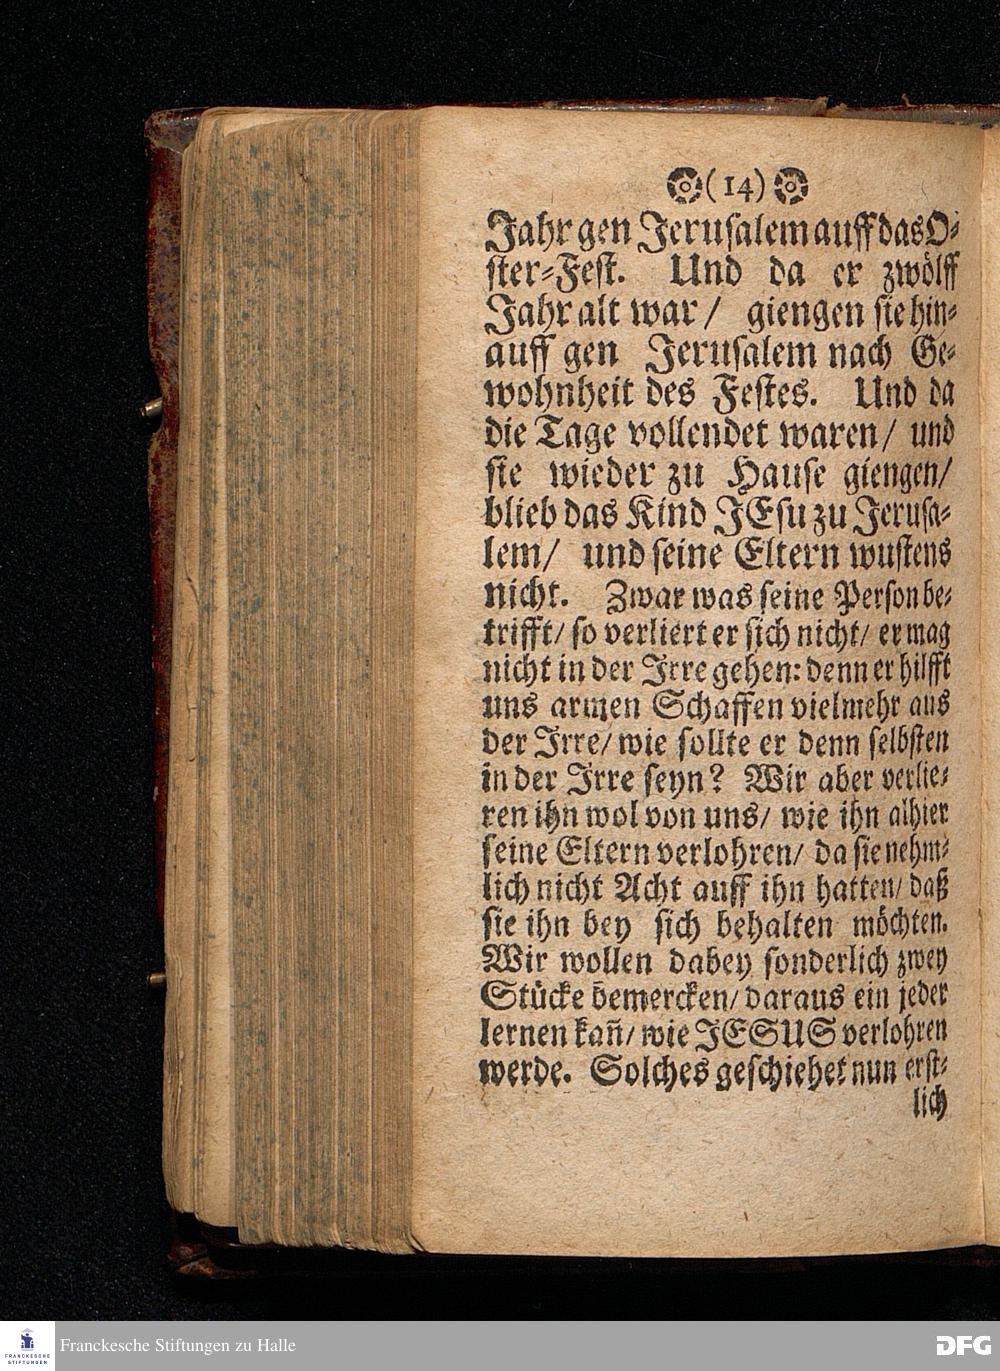 (14)
Jahr gen Jerusalem auff das O-
ster-Fest. Und da er zwölff
Jahr alt war / giengen sie hin-
auff gen Jerusalem nach Ge-
wohnheit des Festes. Und da
die Tage vollendet waren / und
sie wieder zu Hause giengen /
blieb das Kind JEsu zu Jerusa-
lem / und seine Eltern wustens
nicht. Zwar was seine Person be-
trifft / so verliert er sich nicht / er mag
nicht in der Irre gehen: denn er hilfft
uns armen Schaffen vielmehr aus
der Irre / wie sollte er denn selbsten
in der Irre seyn? Wir aber verlie-
ren ihn wol von uns / wie ihn alhier
seine Eltern verlohren / da sie nehm-
lich nicht Acht auff ihn hatten / daß
sie ihn bey sich behalten möchten.
Wir wollen dabey sonderlich zwey
Stücke bemercken / daraus ein jeder
lernen kañ / wie JESUS verlohren
werde. Solches geschiehet nun erst-
lich
FRANCKESCHE STIFTUNGEN
Franckesche Stiftungen zu Halle
DFG